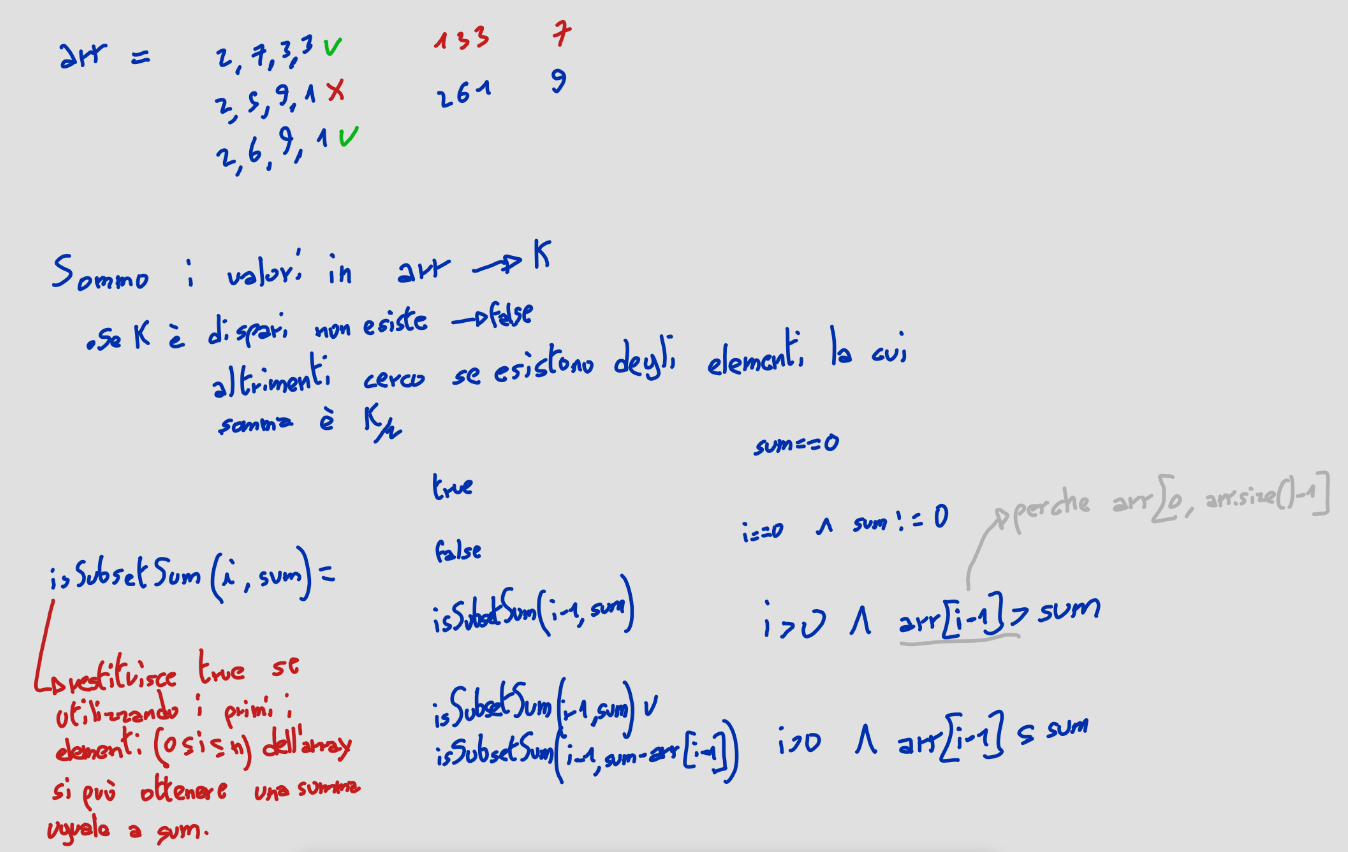 arr = 2, 7, 3, 3 ✓ 133 7
2, 5, 9, 1 ✗ 261 9
2, 6, 9, 1 ✓
Sommo i valori in arr → K
• Se K è dispari non esiste → false
altrimenti cerco se esistono degli elementi la cui
somma è K/2
sum==0
true
i==0 ∧ sum!=0
perche arr[0, arr.size()-1]
false
isSubsetSum(i, sum)=
isSubsetSum(i-1, sum) i>0 ∧ arr[i-1] > sum
isSubsetSum(i-1, sum) ∨
isSubsetSum(i-1, sum-arr[i-1]) i>0 ∧ arr[i-1] ≤ sum
→ restituisce true se
utilizzando i primi i
elementi (0≤i≤n) dell'array
si può ottenere una somma
uguale a sum.